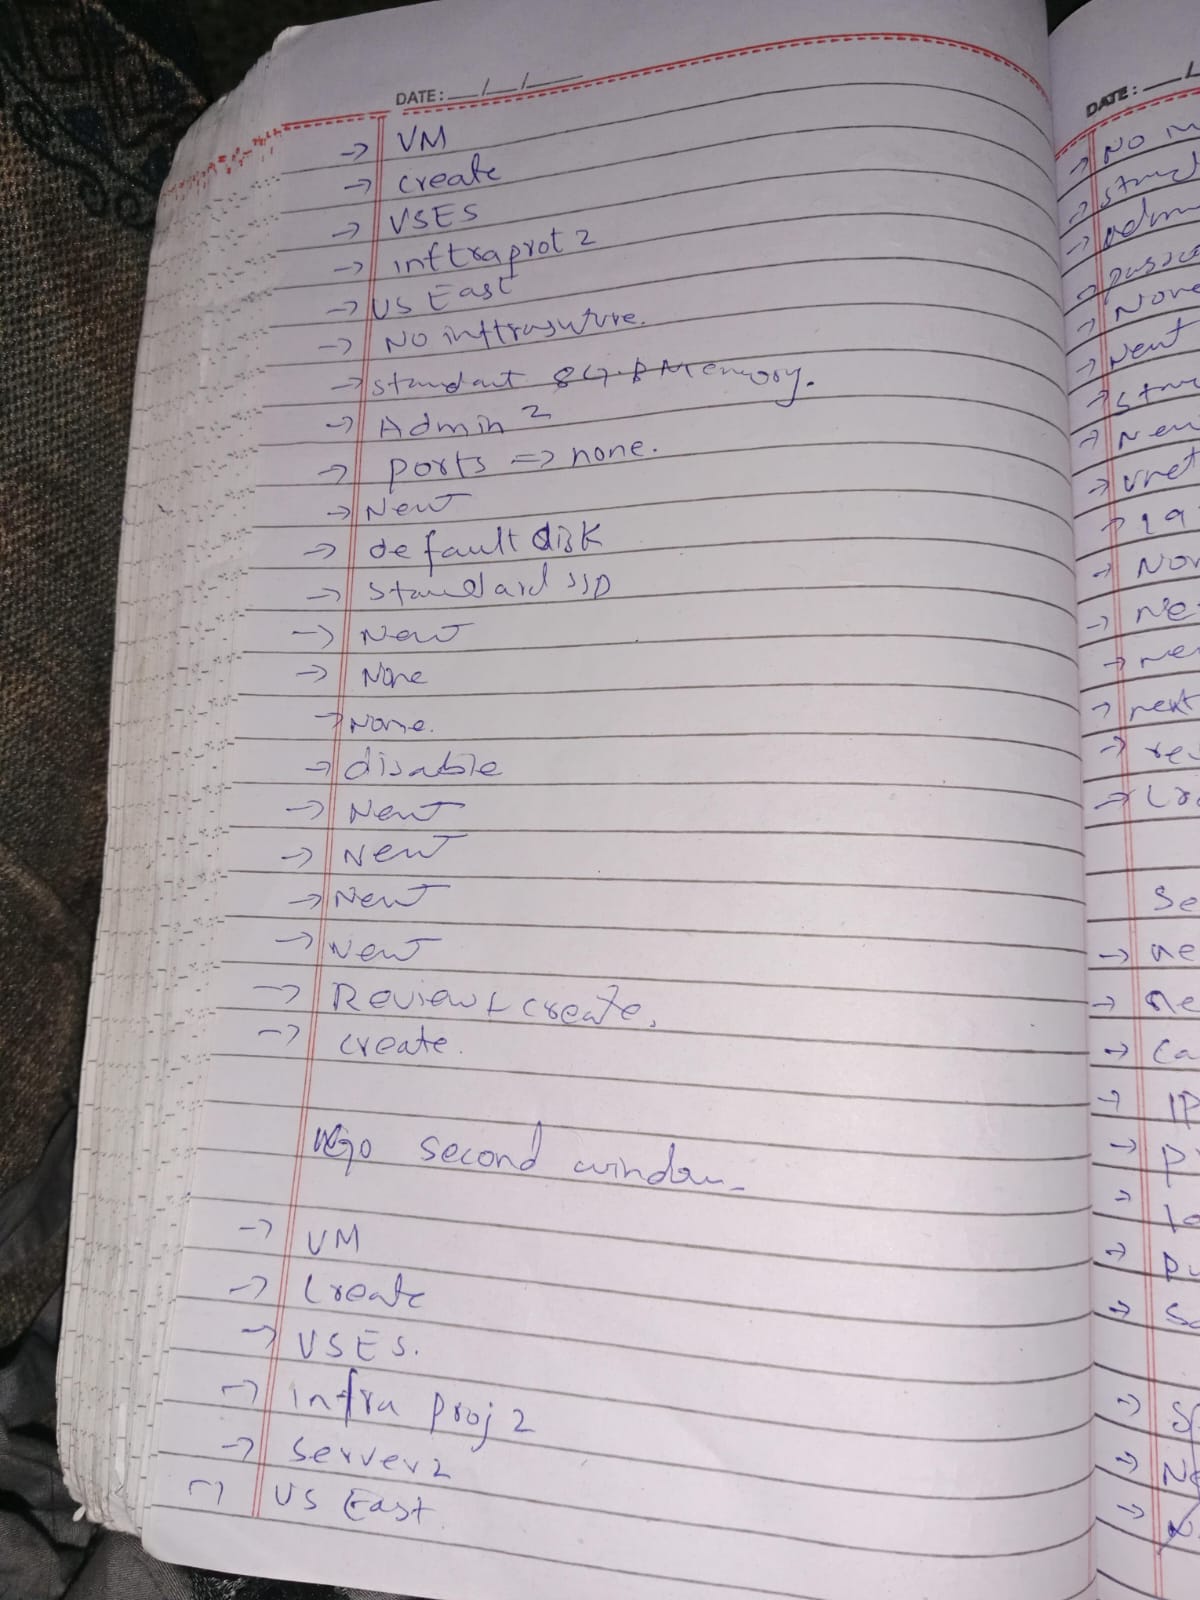 DATE: __/__/____
→ VM
→ create
→ VSES
→ inftraprot 2
→ US East
→ No inftrasuture.
→ standant 8G.B Memory.
→ Admin 2
→ ports => none.
→ Next
→ default disk
→ Standard SSD
→ Next
→ None
→ None.
→ disable
→ Next
→ Next
→ Next
→ Next
→ Review + create.
→ create.
go second window
→ VM
→ Create
→ VSES.
→ infra proj 2
→ server 2
→ US East
DATE: __/
→ No
→
→ adm
→
→ None
→ Next
→
→ Nex
→ vnet
→ 19
→ Non
→ Ne
→ ne
→ next
→ rev
→ Cre
Se
→ ne
→ Ne
→ Ca
→ IP
→ P
→
→ Pu
→ Se
→ S
→ N
→